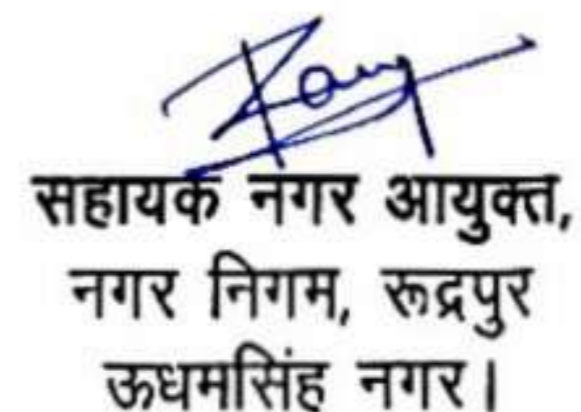 सहायक नगर आयुक्त,
नगर निगम, रूद्रपुर
ऊधमसिंह नगर।